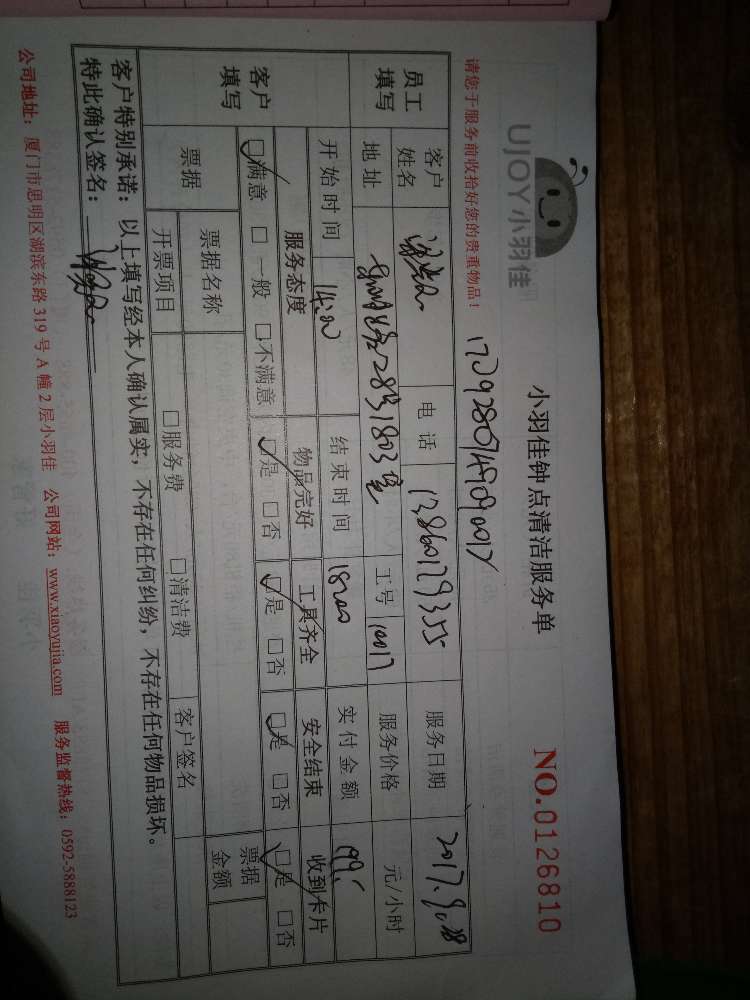 UJOY小羽佳
小羽佳钟点清洁服务单
NO.0126810
请您于服务前收拾好您的贵重物品！
员工填写 客户姓名 电话 13860179355 服务日期 2017.9.28
地址 28号1803室 工号 10017 服务价格 元/小时
开始时间 14:00 结束时间 18:00 实付金额 199.
客户填写 服务态度 物品完好 工具齐全 安全结束 收到卡片
☑满意 □一般 □不满意 ☑是 □否 ☑是 □否 ☑是 □否 ☑是 □否
票据 票据名称 票据金额
开票项目 □服务费 □清洁费 客户签名
客户特别承诺：以上填写经本人确认属实，不存在任何纠纷，不存在任何物品损坏。
特此确认签名：
公司地址：厦门市思明区湖滨东路319号A幢2层小羽佳 公司网站：www.xiaoyujia.com 服务监督热线：0592-5888123